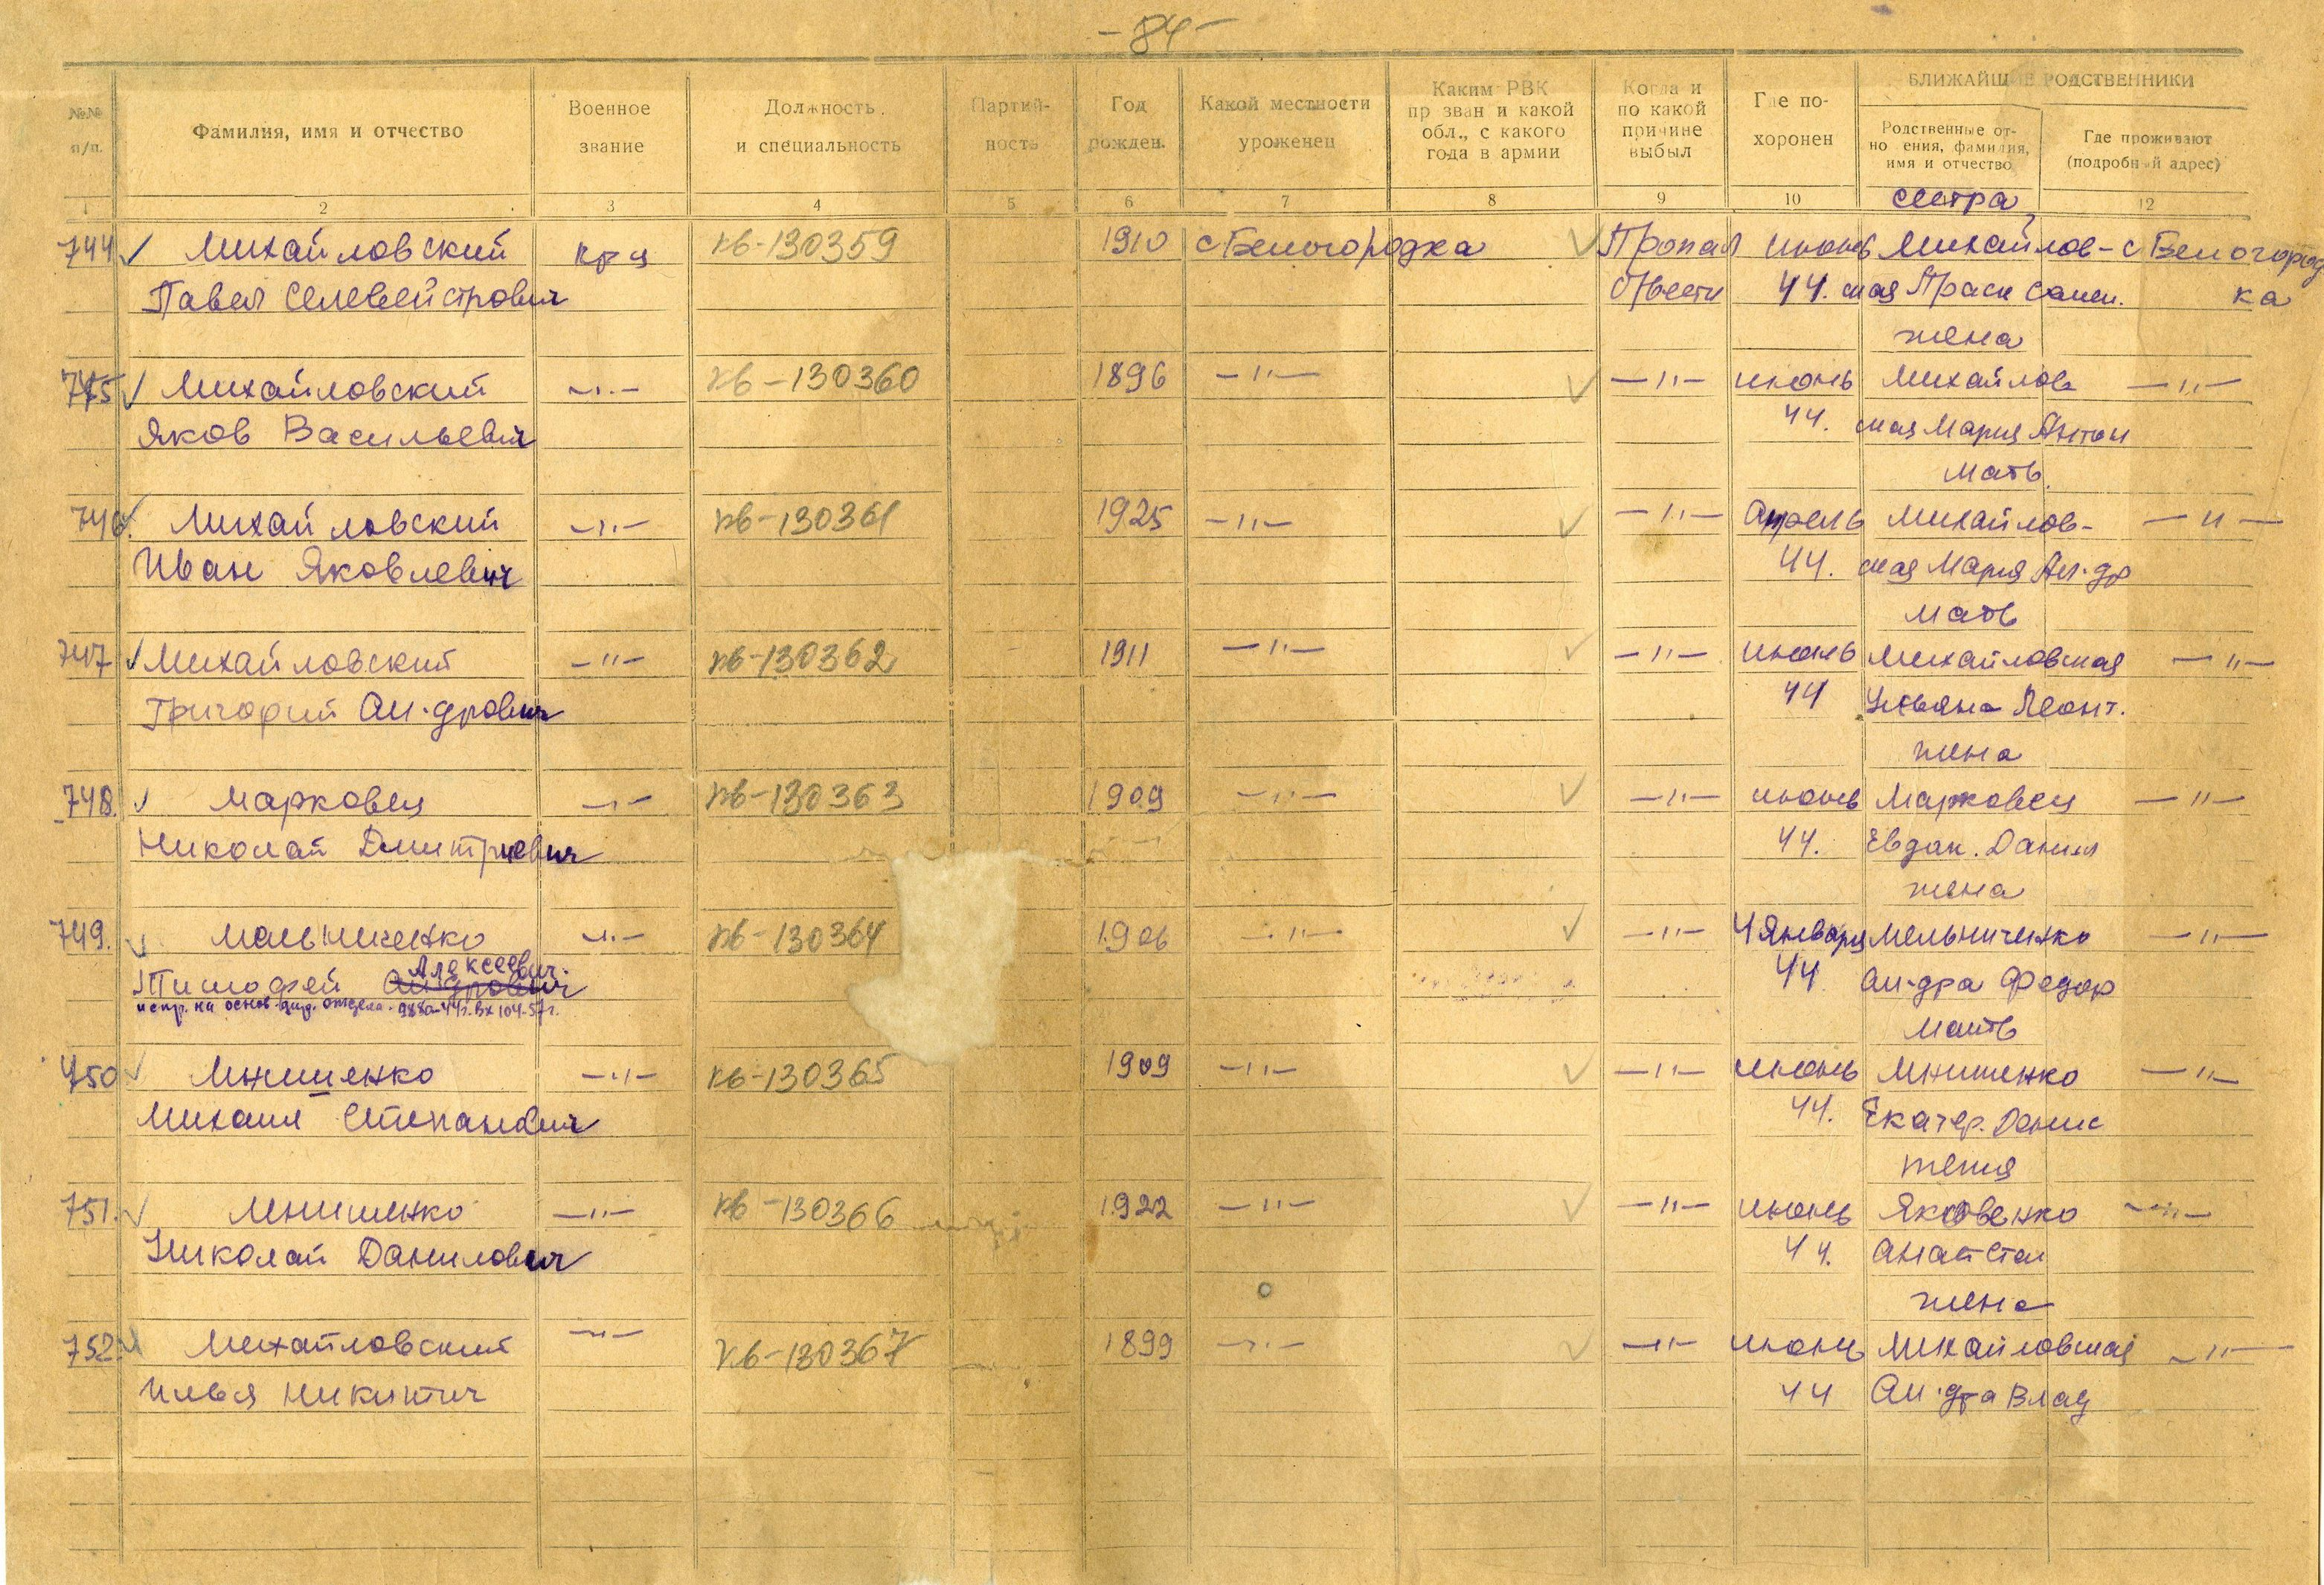 -84-
БЛИЖАЙШИЕ РОДСТВЕННИКИ
№№ п/п.
Фамилия, имя и отчество
Военное звание
Должность и специальность
Партийность
Год рожден.
Какой местности уроженец
Каким РВК пр зван и какой обл., с какого года в армии
Когда и по какой причине выбыл
Где похоронен
Родственные отно ения, фамилия, имя и отчество
Где проживают (подробный адрес)
1 2 3 4 5 6 7 8 9 10 12
сестра
744 ✓ Михайловский кр-ц кв-130359 1910 с Белогородка ✓ Пропал июнь Михайлов- с Белогород
Павел Селевейстрович б/вести 44. ская Праск Самси. ка
жена
745 ✓ Михайловский —"— кв-130360 1896 —"— ✓ —"— июнь Михайлов —"—
Яков Васильевич 44. ская Мария Антон
мать
746. Михайловский —"— кв-130361 1925 —"— ✓ —"— Апрель Михайлов- —"—
Иван Яковлевич 44. ская Мария Ал-др
мать
747 ✓ Михайловский —"— кв-130362 1911 —"— ✓ —"— июнь Михайловская —"—
Григорий Ал-дрович 44 Ульяна Леонт.
жена
748. ✓ Марковец —"— кв-130363 1909 —"— ✓ —"— июнь Марковец —"—
Николай Дмитриевич 44. Евдок. Данил
жена
749. ✓ Мельниченко —"— кв-130364 1906 —"— ✓ —"— 4 Января Мельниченко —"—
Алексеевич.
Тимофей Ал-дрович 44 Ал-дра Федор
испр. на основ. отдела. 988а-44г. Вх 104-57г.
мать
750 ✓ Мнишенко —"— кв-130365 1909 —"— ✓ —"— июнь Мнишенко —"—
Михаил Степанович 44. Екатер. Денис
жена
751. ✓ Мнишенко —"— кв-130366 1922 —"— ✓ —"— июнь Яковенко —"—
Николай Данилович 44. Анаст Степ
жена
752. Михайловский —"— кв-130367 1899 —"— ✓ —"— июнь Михайловская —"—
Илья Никитич 44 Ал-дра Влад